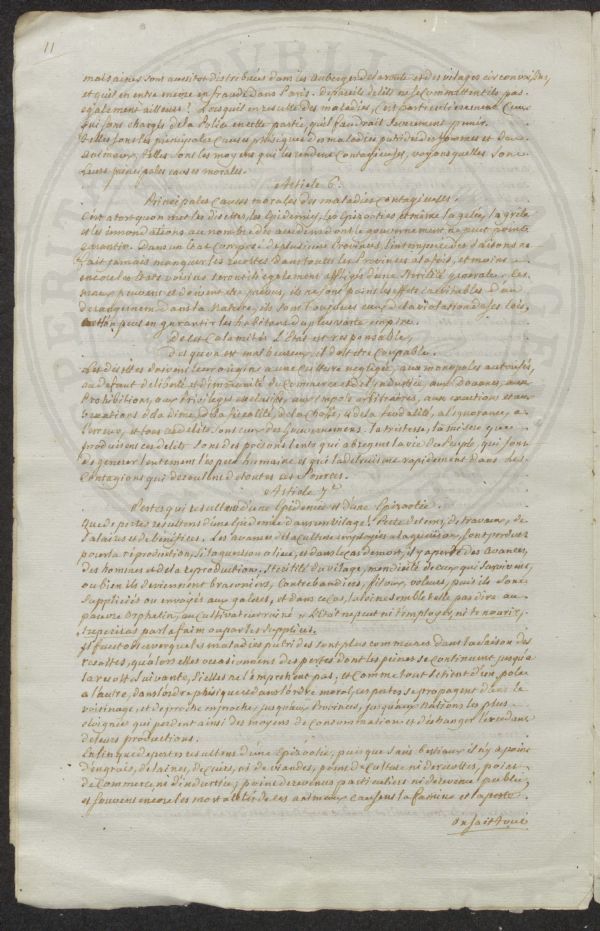 11
malsaines sont aussitot distribuées dans les auberges des routes et des vilages circonvoisins,
et qu'il en entre meme en fraude dans Paris. de pareils delits ne se commettent ils pas
egalement ailleurs? Lorsqu'il en resulte des maladies, c'est particulierement ceux
qui sont chargés de la Police en cette partie, qu'il faudrait severement punir.
Telles sont les principales causes phisiques des maladies putrides des hommes et des
animaux, telles sont les moyens qui les rendent contagieuses, voyons quelles sont
leurs principales causes morales.
Article 6.
Principales causes morales des maladies contagieuses.
C'est a tort qu'on met les disettes, les Epidemies, les Epizooties et meme la gelée, la grele
et les innondations au nombre des accidens dont le gouvernement ne peut point
garantir. Dans un Etat composé de plusieurs Provinces, l'intemperie des saisons ne
fait jamais manquer les recoltes dans toutes les Provinces a la fois, et moins
encore les Etats voisins seront ils egalement affligés d'une sterilité generale. les
maux peuvent et doivent etre prevus, ils ne sont point les effets inévitables d'un
derangement dans la Nature, ils sont toujours ceux de la violation de ses lois,
et l'on peut en garantir les habitans du plus vaste empire.
De les Calamités l'Etat est responsable,
Des qu'on est malheureux, il doit etre coupable.
Les disettes doivent leur origine a une culture negligée, aux monopoles autorisés,
au defaut de liberté et d'immunité du Commerce et de l'industrie, aux Douanes, aux
Prohibitions, aux Privileges exclusifs, aux impots arbitraires, aux exactions et aux
vexations de la dime, de la fiscalité, de la chasse, & de la feodalité, a l'ignorance, a
l'erreur, et tous ces delits sont ceux des Gouvernemens. la tristesse, la misere que
produisent ces delits sont des poisons lents qui abregent la vie du Peuple, qui font
degenerer lentement l'espece humaine et qui la detruisent rapidement dans les
Contagions qui decoulent de toutes ces sources.
Article 7e
Pertes qui resultent d'une Epidemie et d'une Epizootie.
Que de pertes resultent d'une Epidemie dans un vilage! Perte de tems, de travaux, de
salaires et de benefices. Les avances de la culture employées a la guerison, sont perdues
pour la reproduction, si la guerison a lieu, et dans le cas de mort, il y a perte des avances,
des hommes et de la reproduction, sterilité du vilage, mendicité de ceux qui survivent,
ou bien ils deviennent braconiers, contrebandiers, filoux, voleurs, puis ils sont
suppliciés ou envoyés aux galeres, et dans ce cas, la loi ne semble t elle pas dire au
pauvre orphelin, au cultivateur ruiné " L'Etat ne peut ni t'employer, ni te nourir;
tu periras par la faim ou par les supplices.
Il faut observer que les maladies putrides sont plus communes dans la saison des
recoltes, qu'alors elles occasionnent des pertes dont les peines se continuent jusqu'a
la recolte suivante, si elles ne l'empechent pas, et comme tout se tient d'un pole
a l'autre, dans l'ordre phisique et dans l'ordre moral, ces pertes se propagent dans le
voisinage, et de proche en proche, jusqu'aux Provinces, jusqu'aux nations les plus
eloignées qui perdent ainsi des moyens de consommation et d'echanger l'excedent
de leurs productions.
Enfin que de pertes resultent d'une Epizootie, puisque sans bestiaux il n'y a point
d'engrais, de laines, de cuirs, ni de viandes, point de culture ni de recoltes, point
de commerce, ni d'industrie, point de revenus particuliers ni de revenu public,
et souvent encore les mortalités de ces animaux causent la famine et la peste.
on sait que